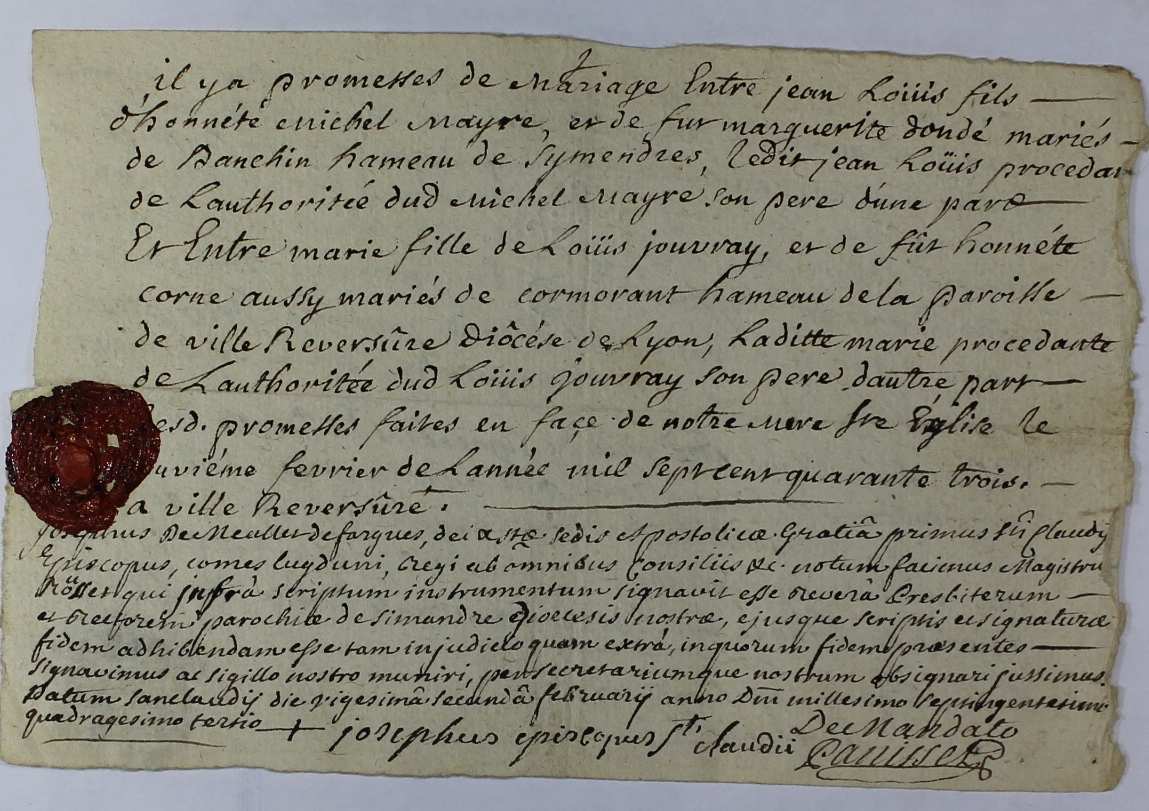 il y a promesses de Mariage Entre jean Loüis fils
d'honnéte Michel Mayre, et de fut marguerite dondé mariés
de Banchin hameau de Symendres, ledit jean Loüis procedan
de Lauthoritée dud Michel Mayre son pere d'une part
Et Entre marie fille de Loüis jouvray, et de fût honnéte
corne aussy mariés de cormorant hameau de la paroisse
de ville Reversûre Diôcése de Lyon, Laditte marie procedante
de Lauthoritée dud Loüis jouvray son pere d'autre part
lesd. promesses faites en façe de notre Mere Ste Église le
uviéme fevrier de Lannée mil sept cent quarante trois.
a ville Reversûre.
De Meallet de fargues, dei et Stæ sedis Apostolicæ Gratiâ primus Sti Claudij
Episcopus, comes lugduni, Regi ab omnibus Consiliis &c. notum facimus Magistru
qui infrà scriptum instrumentum signavit esse reverà Presbiterum
et Rectorem parochiæ de Simandre Dioecesis nostræ, ejusque scriptis et signaturæ
fidem adhibendam esse tam in judicio quam extrà, in quorum fidem præsentes
signavimus ac sigillo nostro muniri, per secretariumque nostrum obsignari jussimus.
Datum sanclaudij die vigesimâ secundâ februarij anno Dni millesimo septingentesimo
quadragesimo tertio
+ josephus episcopus St. claudii
De Mandato